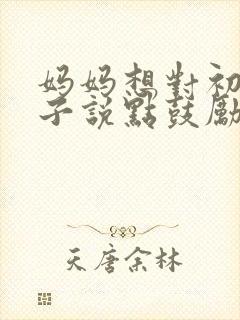 妈妈想對初
子说點鼓勵
天唐余林